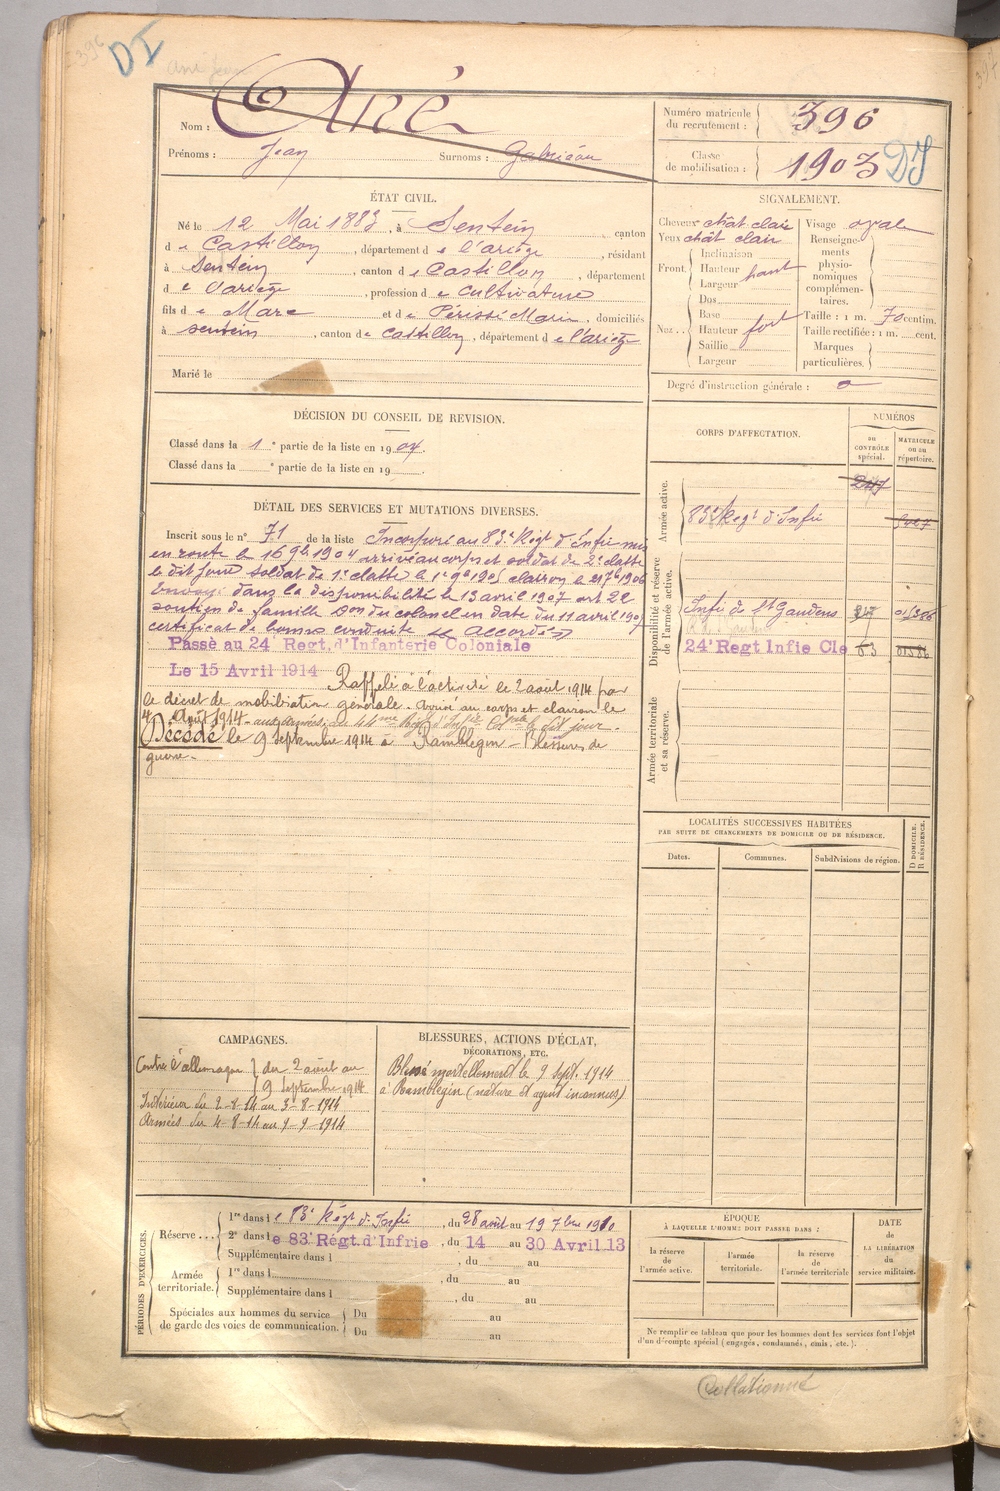 396
DI
Ané Jean
Nom : Ané
Prénoms : Jean Surnoms :
Numéro matricule du recrutement : 396
Classe de mobilisation : 1903 DI
ÉTAT CIVIL.
Né le 12 Mai 1883, à Sentein, canton
de Castillon, département de l'ariège, résidant
à Sentein, canton de Castillon, département
de l'ariège, profession de cultivateur
fils de Marc et de Périssé Marie, domiciliés
à sentein, canton de Castillon, département de l'ariège
Marié le
SIGNALEMENT.
Cheveux chât clair
Yeux chât clair
Front. Inclinaison
Hauteur haut
Largeur
Nez.. Dos
Base
Hauteur fort
Saillie
Largeur
Visage ovale
Renseignements physionomiques complémentaires.
Taille : 1 m. 70 centim.
Taille rectifiée : 1 m. cent.
Marques particulières.
Degré d'instruction générale : 0
DÉCISION DU CONSEIL DE REVISION.
Classé dans la 1e partie de la liste en 1904.
Classé dans la e partie de la liste en 19
DÉTAIL DES SERVICES ET MUTATIONS DIVERSES.
Inscrit sous le n° 71 de la liste Incorporé au 83e Régt d'Infie mis
en route le 16 9bre 1904 arrivé au corps et soldat de 2e classe
le dit jour soldat de 1e classe le clairon le
Envoyé dans la disponibilité le 13 avril 1907 art 22
soutien de famille Don du colonel en date du 11 avril 1907
certificat de bonne conduite accordé
Passé au 24e Regt. d'Infanterie Coloniale
Le 15 Avril 1914 Rappelé à l'activité le 2 août 1914 par
le décret de mobilisation générale. arrivé au corps et clairon le
4 Août 1914. aux armées, au 44me Régt d'Infie Cle le dit jour.
Décédé le 9 Septembre 1914 à Ramblegin - Blessures de
guerre.
CORPS D'AFFECTATION.
NUMÉROS
au CONTRÔLE spécial.
MATRICULE ou au répertoire.
Armée active.
247
83e Regt d'Infie
Disponibilité et réserve de l'armée active.
Infie de St Gaudens 217 01386
24e Regt Infie Cle 53
Armée territoriale et sa réserve.
LOCALITÉS SUCCESSIVES HABITÉES
PAR SUITE DE CHANGEMENTS DE DOMICILE OU DE RÉSIDENCE.
Dates.
Communes.
Subdivisions de région.
D DOMICILE.
R RÉSIDENCE.
CAMPAGNES.
Contre l'allemagne du 2 août au
9 Septembre 1914
Intérieur du 2-8-14 au 3-8-1914
Armées du 4-8-14 au 9-9-1914
BLESSURES, ACTIONS D'ÉCLAT,
DÉCORATIONS, ETC.
Blessé mortellement le 9 sept. 1914
à Ramblegin (nature et agent inconnus)
PÉRIODES D'EXERCICES.
Réserve... 1re dans le 83e Régt d'Infie, du 28 août au 19 7bre 1910
2e dans le 83e Régt. d'Infrie, du 14 au 30 Avril.13
Supplémentaire dans l , du au
Armée territoriale. 1re dans l , du au
Supplémentaire dans l , du au
Spéciales aux hommes du service de garde des voies de communication. Du au
Du au
ÉPOQUE
À LAQUELLE L'HOMME DOIT PASSER DANS :
la réserve de l'armée active.
l'armée territoriale.
la réserve de l'armée territoriale
DATE
de
LA LIBÉRATION
du
service militaire.
Ne remplir ce tableau que pour les hommes dont les services font l'objet
d'un décompte spécial (engagés, condamnés, omis, etc.).
Collationné